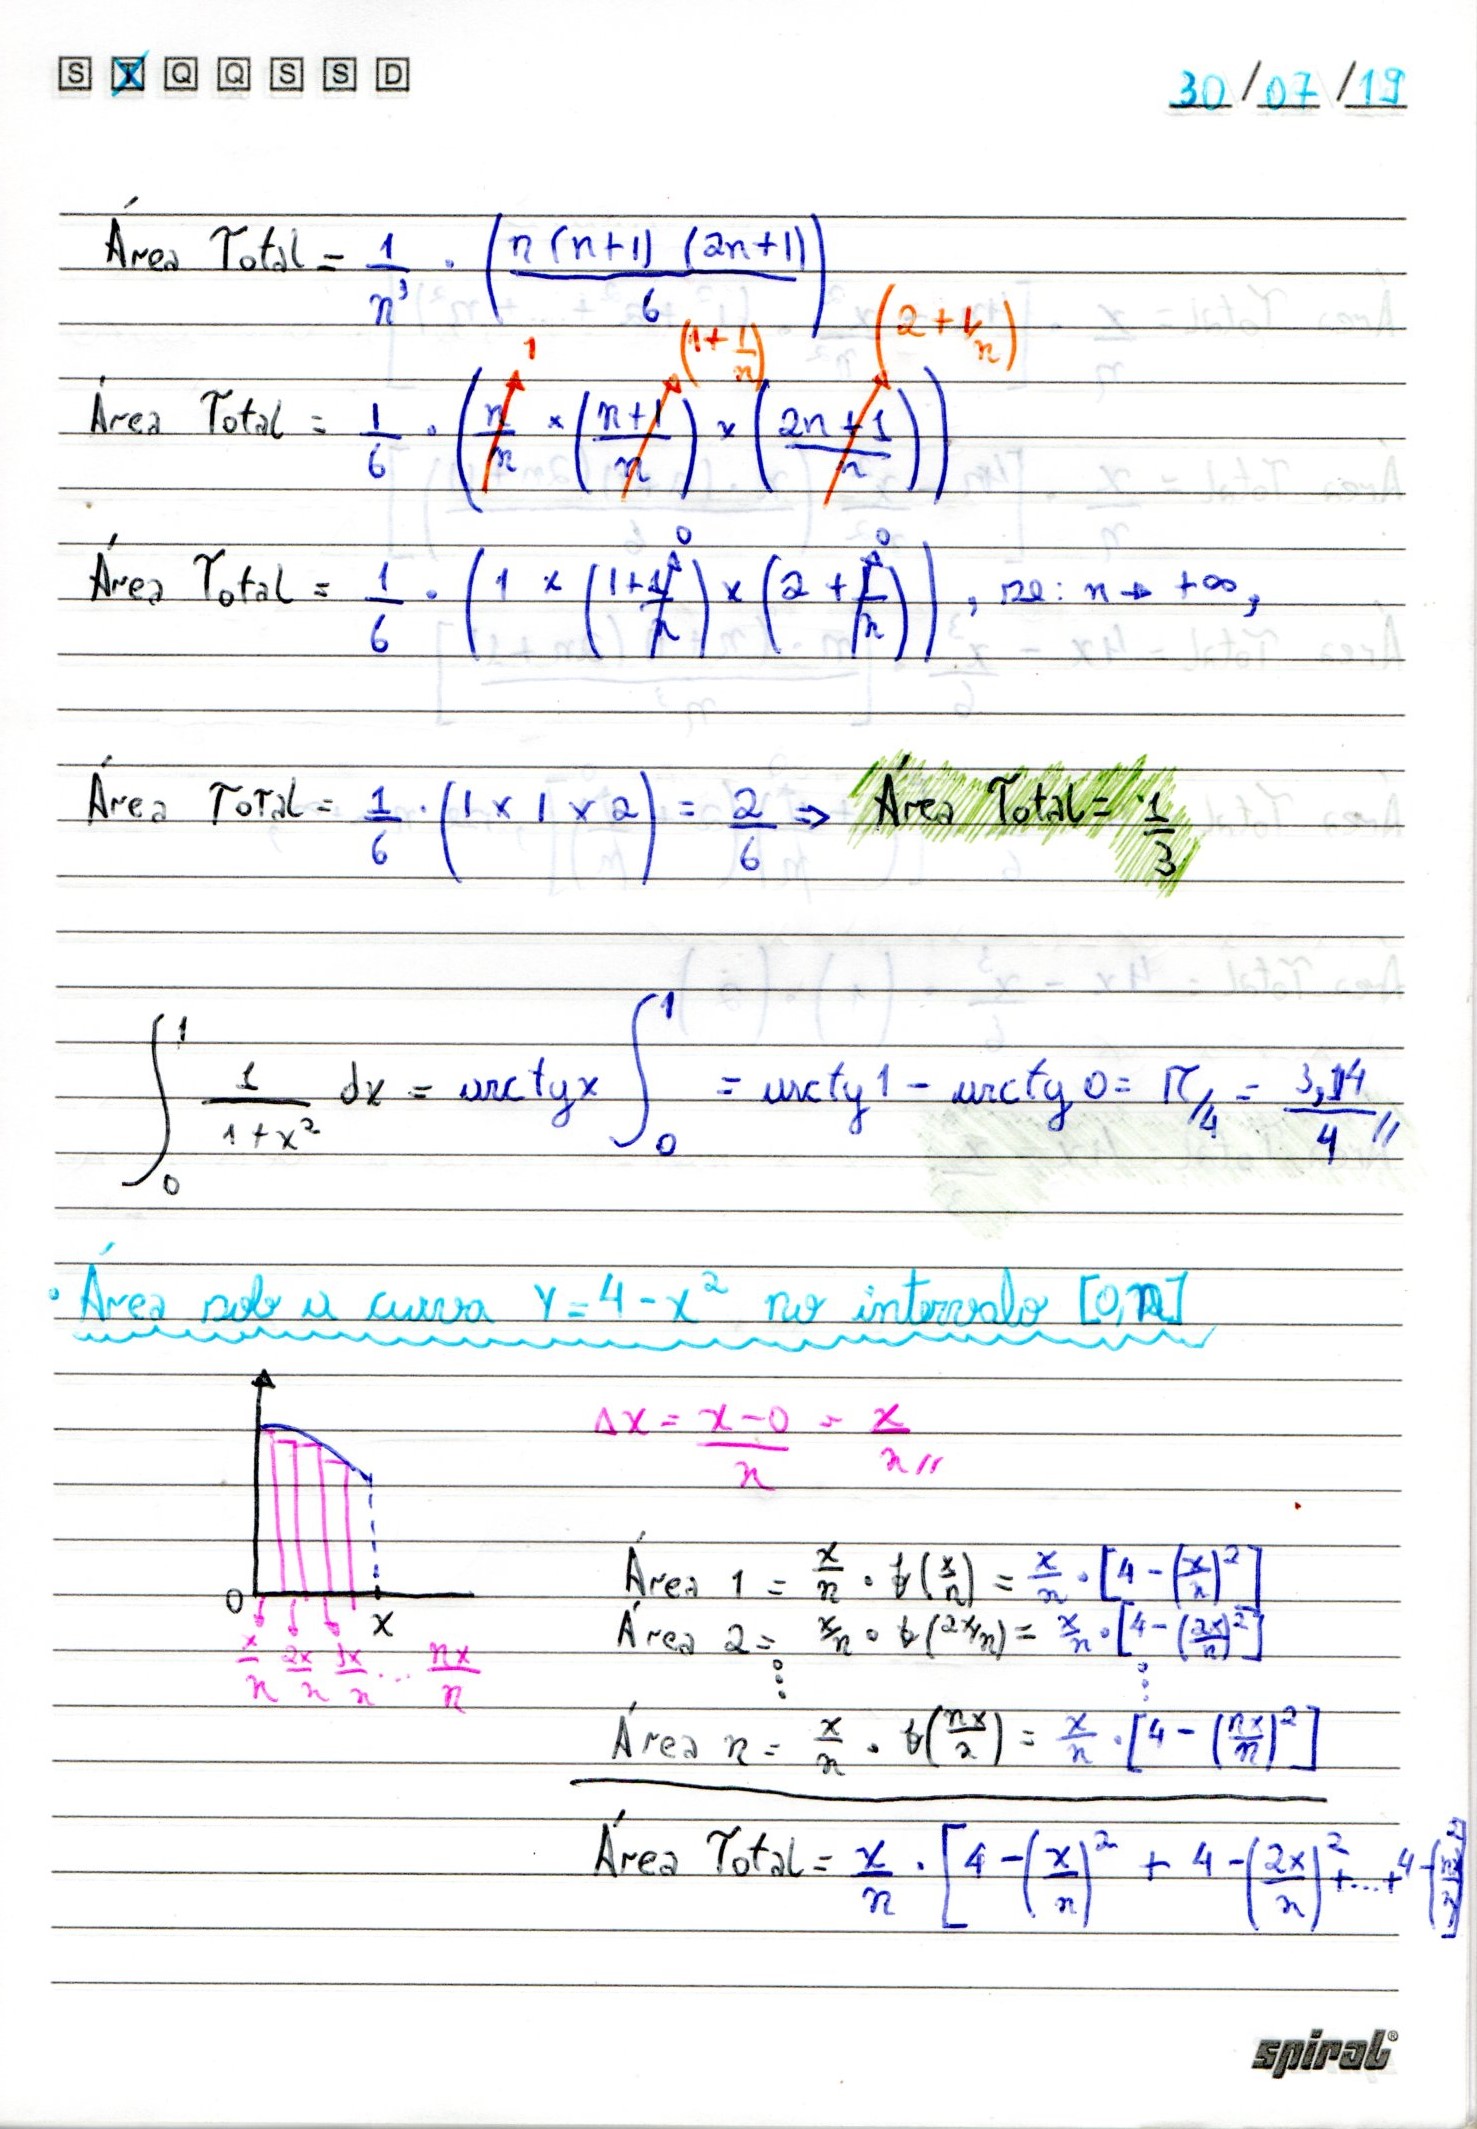 S T Q Q S S D 30/07/19
Área Total = 1/n³ · (n (n+1) (2n+1)/6)
1 (1 + 1/n) (2 + 1/n)
Área Total = 1/6 · (n/n × (n+1/n) × (2n+1/n))
0 0
Área Total = 1/6 · (1 × (1+1/n) × (2 + 1/n)), se: n → +∞,
Área Total = 1/6 · (1 × 1 × 2) = 2/6 ⇒ Área Total = 1/3
∫₀¹ 1/1+x² dx = arctgx ∫₀¹ = arctg1 - arctg0 = π/4 = 3,14/4 //
• Área sob a curva Y = 4 - x² no intervalo
Δx = x-0/n = x/n //
0 x
x/n 2x/n 3x/n ... nx/n
Área 1 = x/n · f(x/n) = x/n · [4 - (x/n)²]
Área 2 = x/n · f(2x/n) = x/n · [4 - (2x/n)²]
⋮ ⋮
Área n = x/n · f(nx/2) = x/n · [4 - (nx/n)²]
Área Total = x/n · [4 - (x/n)² + 4 - (2x/n)² + ... + 4 - (nx/n)²]
spiral®